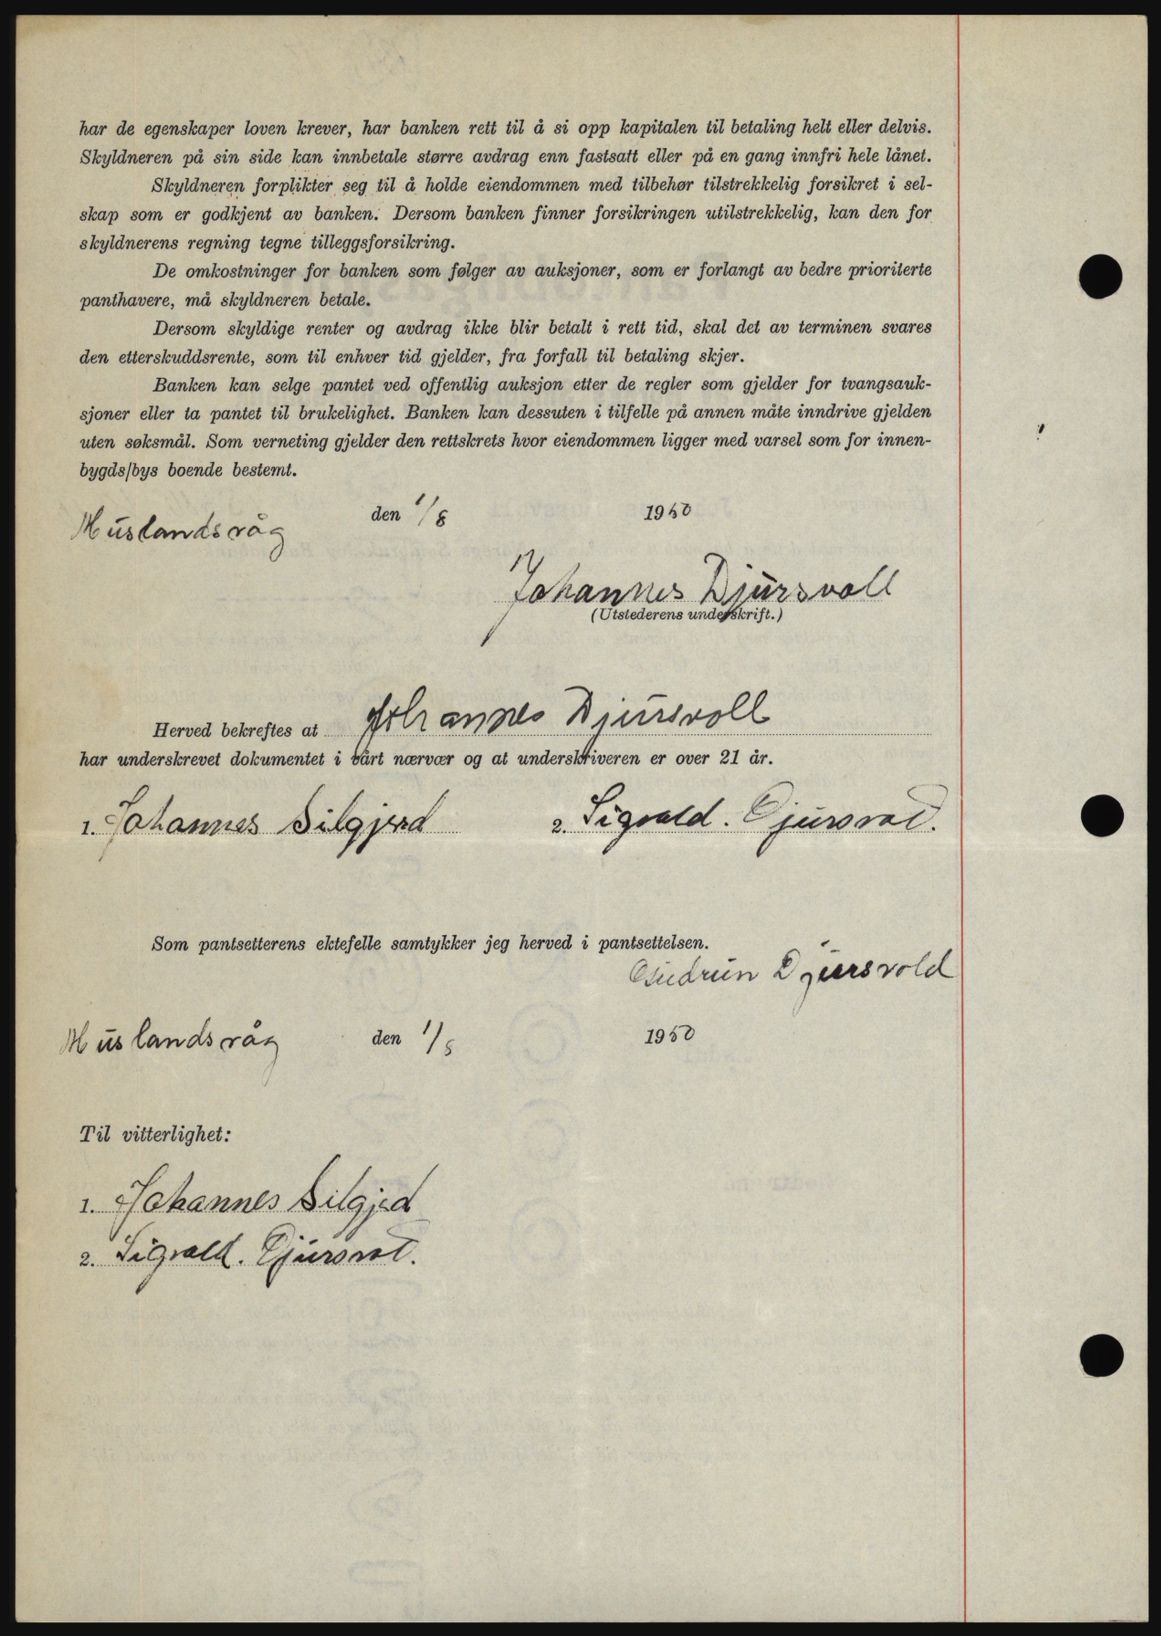 har de egenskaper loven krever, har banken rett til å si opp kapitalen til betaling helt eller delvis.
Skyldneren på sin side kan innbetale større avdrag enn fastsatt eller på en gang innfri hele lånet.
Skyldneren forplikter seg til å holde eiendommen med tilbehør tilstrekkelig forsikret i sel-
skap som er godkjent av banken. Dersom banken finner forsikringen utilstrekkelig, kan den for
skyldnerens regning tegne tilleggsforsikring.
De omkostninger for banken som følger av auksjoner, som er forlangt av bedre prioriterte
panthavere, må skyldneren betale.
Dersom skyldige renter og avdrag ikke blir betalt i rett tid, skal det av terminen svares
den etterskuddsrente, som til enhver tid gjelder, fra forfall til betaling skjer.
Banken kan selge pantet ved offentlig auksjon etter de regler som gjelder for tvangsauk-
sjoner eller ta pantet til brukelighet. Banken kan dessuten i tilfelle på annen måte inndrive gjelden
uten søksmål. Som verneting gjelder den rettskrets hvor eiendommen ligger med varsel som for innen-
bygds/bys boende bestemt.
Muslandsvåg den 1/8 1950
Johannes Djursvoll
(Utstederens underskrift.)
Herved bekreftes at Johannes Djursvoll
har underskrevet dokumentet i vårt nærvær og at underskriveren er over 21 år.
1. Johannes Silgjerd 2. Sigvald. Djursvol.
Som pantsetterens ektefelle samtykker jeg herved i pantsettelsen.
Gudrun Djursvold
Muslandsvåg den 1/8 1950
Til vitterlighet:
1. Johannes Silgjerd
2. Sigvald. Djursvol.